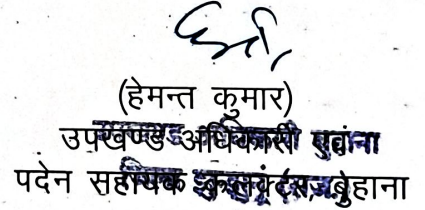 (हेमन्त कुमार)
उपखण्ड अधिकारी एवं
पदेन सहायक कलक्टर, बुहाना